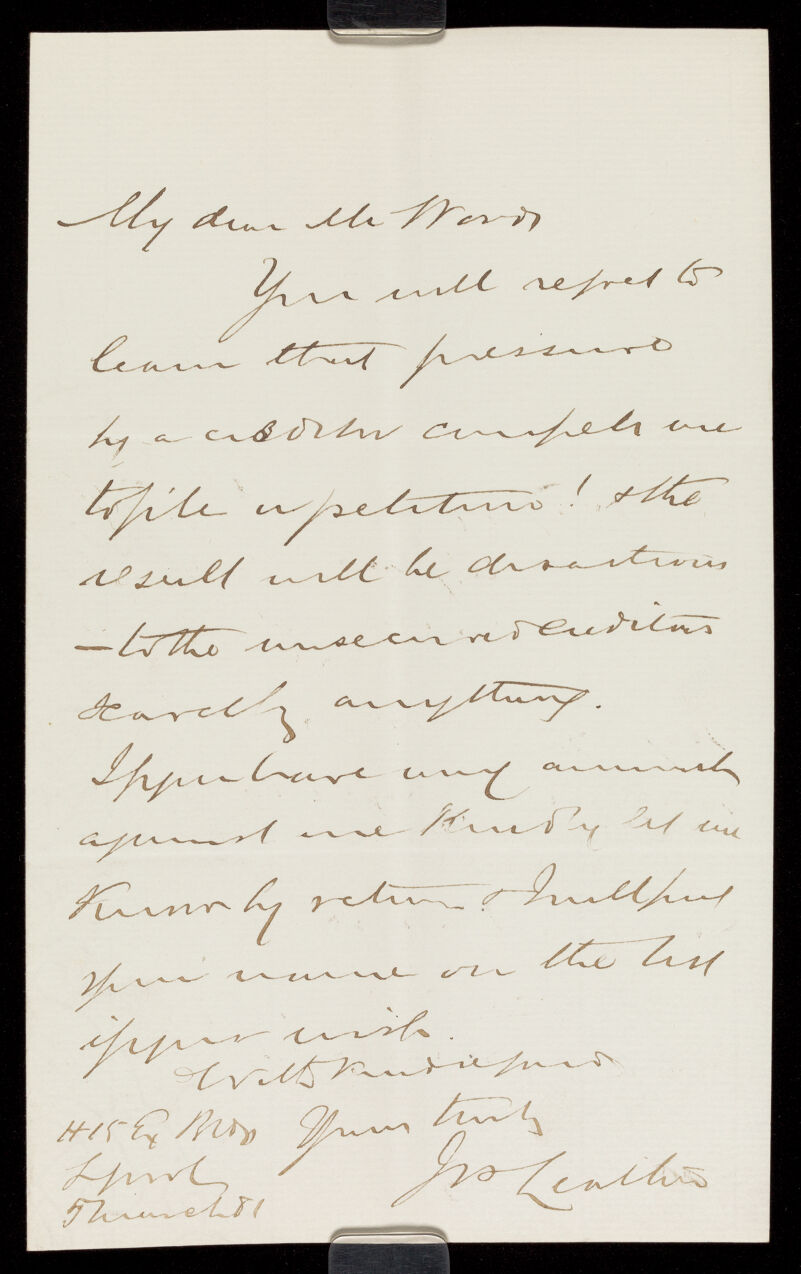 My dear Mr Woods
You will regret to
learn that pressure
by a creditor compels me
to file a petition! & the
result will be disastrous
– to the unsecured creditors
scarcely anything.
If you have any amounts
against me Kindly let me
Know by return & I will put
your name on the list
if you wish.
With kind regards
Yours truly
H15 Ex Bldgs
Lpool
5 March 81
Jos Leather